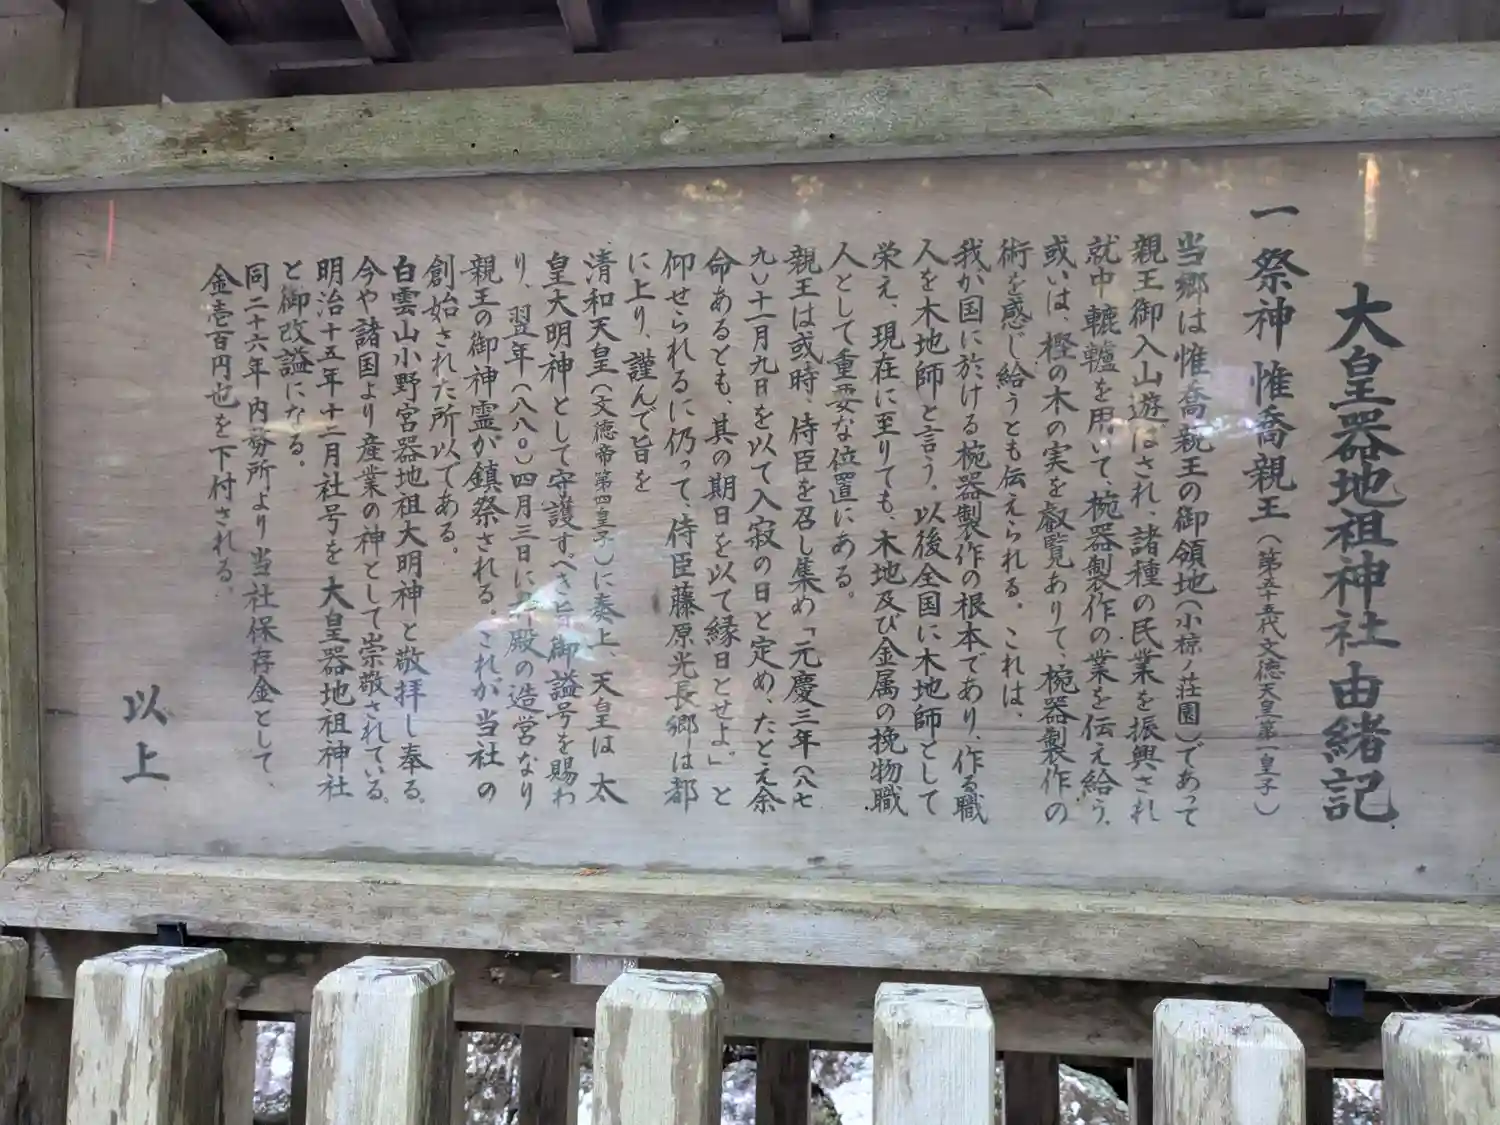 大皇器地祖神社由緒記
一 祭神 惟喬親王(第五十五代文徳天皇第一皇子)
当郷は惟喬親王の御領地(小椋ノ荘園)であって
親王御入山遊ばされ、諸種の民業を振興され
就中轆轤を用いて、椀器製作の業を伝え給う。
或いは、樫の木の実を叡覧ありて、椀器製作の
術を感じ給うとも伝えられる。これは、
我が国に於ける椀器製作の根本であり、作る職
人を木地師と言う。以後全国に木地師として
栄え、現在に至りても、木地及び金属の挽物職
人として重要な位置にある。
親王は或時、侍臣を召し集め「元慶三年(八七
九)十一月九日を以て入寂の日と定め、たとえ余
命あるとも、其の期日を以て縁日とせよ」と
仰せられるに仍って、侍臣藤原光長郷は都
に上り、謹んで旨を
清和天皇(文徳帝第四皇子)に奏上、天皇は太
皇大明神として守護すべき旨御謚号を賜わ
り、翌年(八八〇)四月三日に 殿の造営なり
親王の御神霊が鎮祭される。これが当社の
創始された所以である。
白雲山小野宮器地祖大明神と敬拝し奉る。
今や諸国より産業の神として崇敬されている。
明治十五年十二月社号を大皇器地祖神社
と御改謚になる。
同二十六年内務所より当社保存金として、
金壱百円也を下付される。
以上